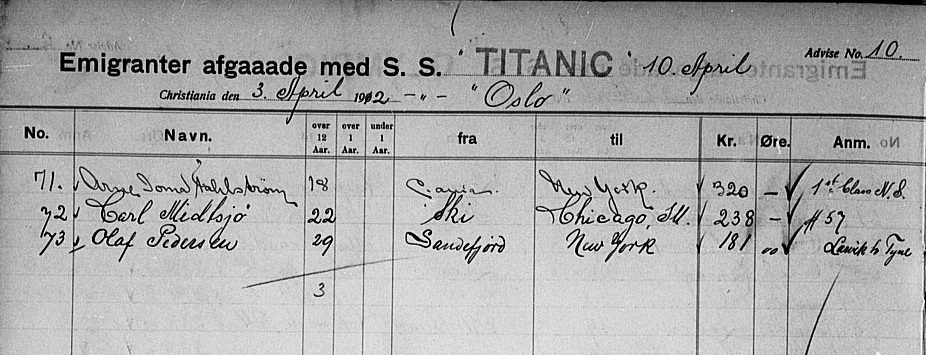 Advise No. 10.
Emigranter afgaaade med S. S. "TITANIC" 10. April
Christiania den 3. April 1912 — „ — "Oslo"
No. Navn. over 12 Aar. over 1 Aar. under 1 Aar. fra til Kr. Øre. Anm.
71. Arne Joma Fahlstrøm 18 C.ania. New York. 320 — 1st Class N. S.
72 Carl Midtsjø 22 Ski Chicago, Ill. 238 — # 57
73 Olaf Pedersen 29 Sandefjord New York 181 00 Larvik to Tyne
3